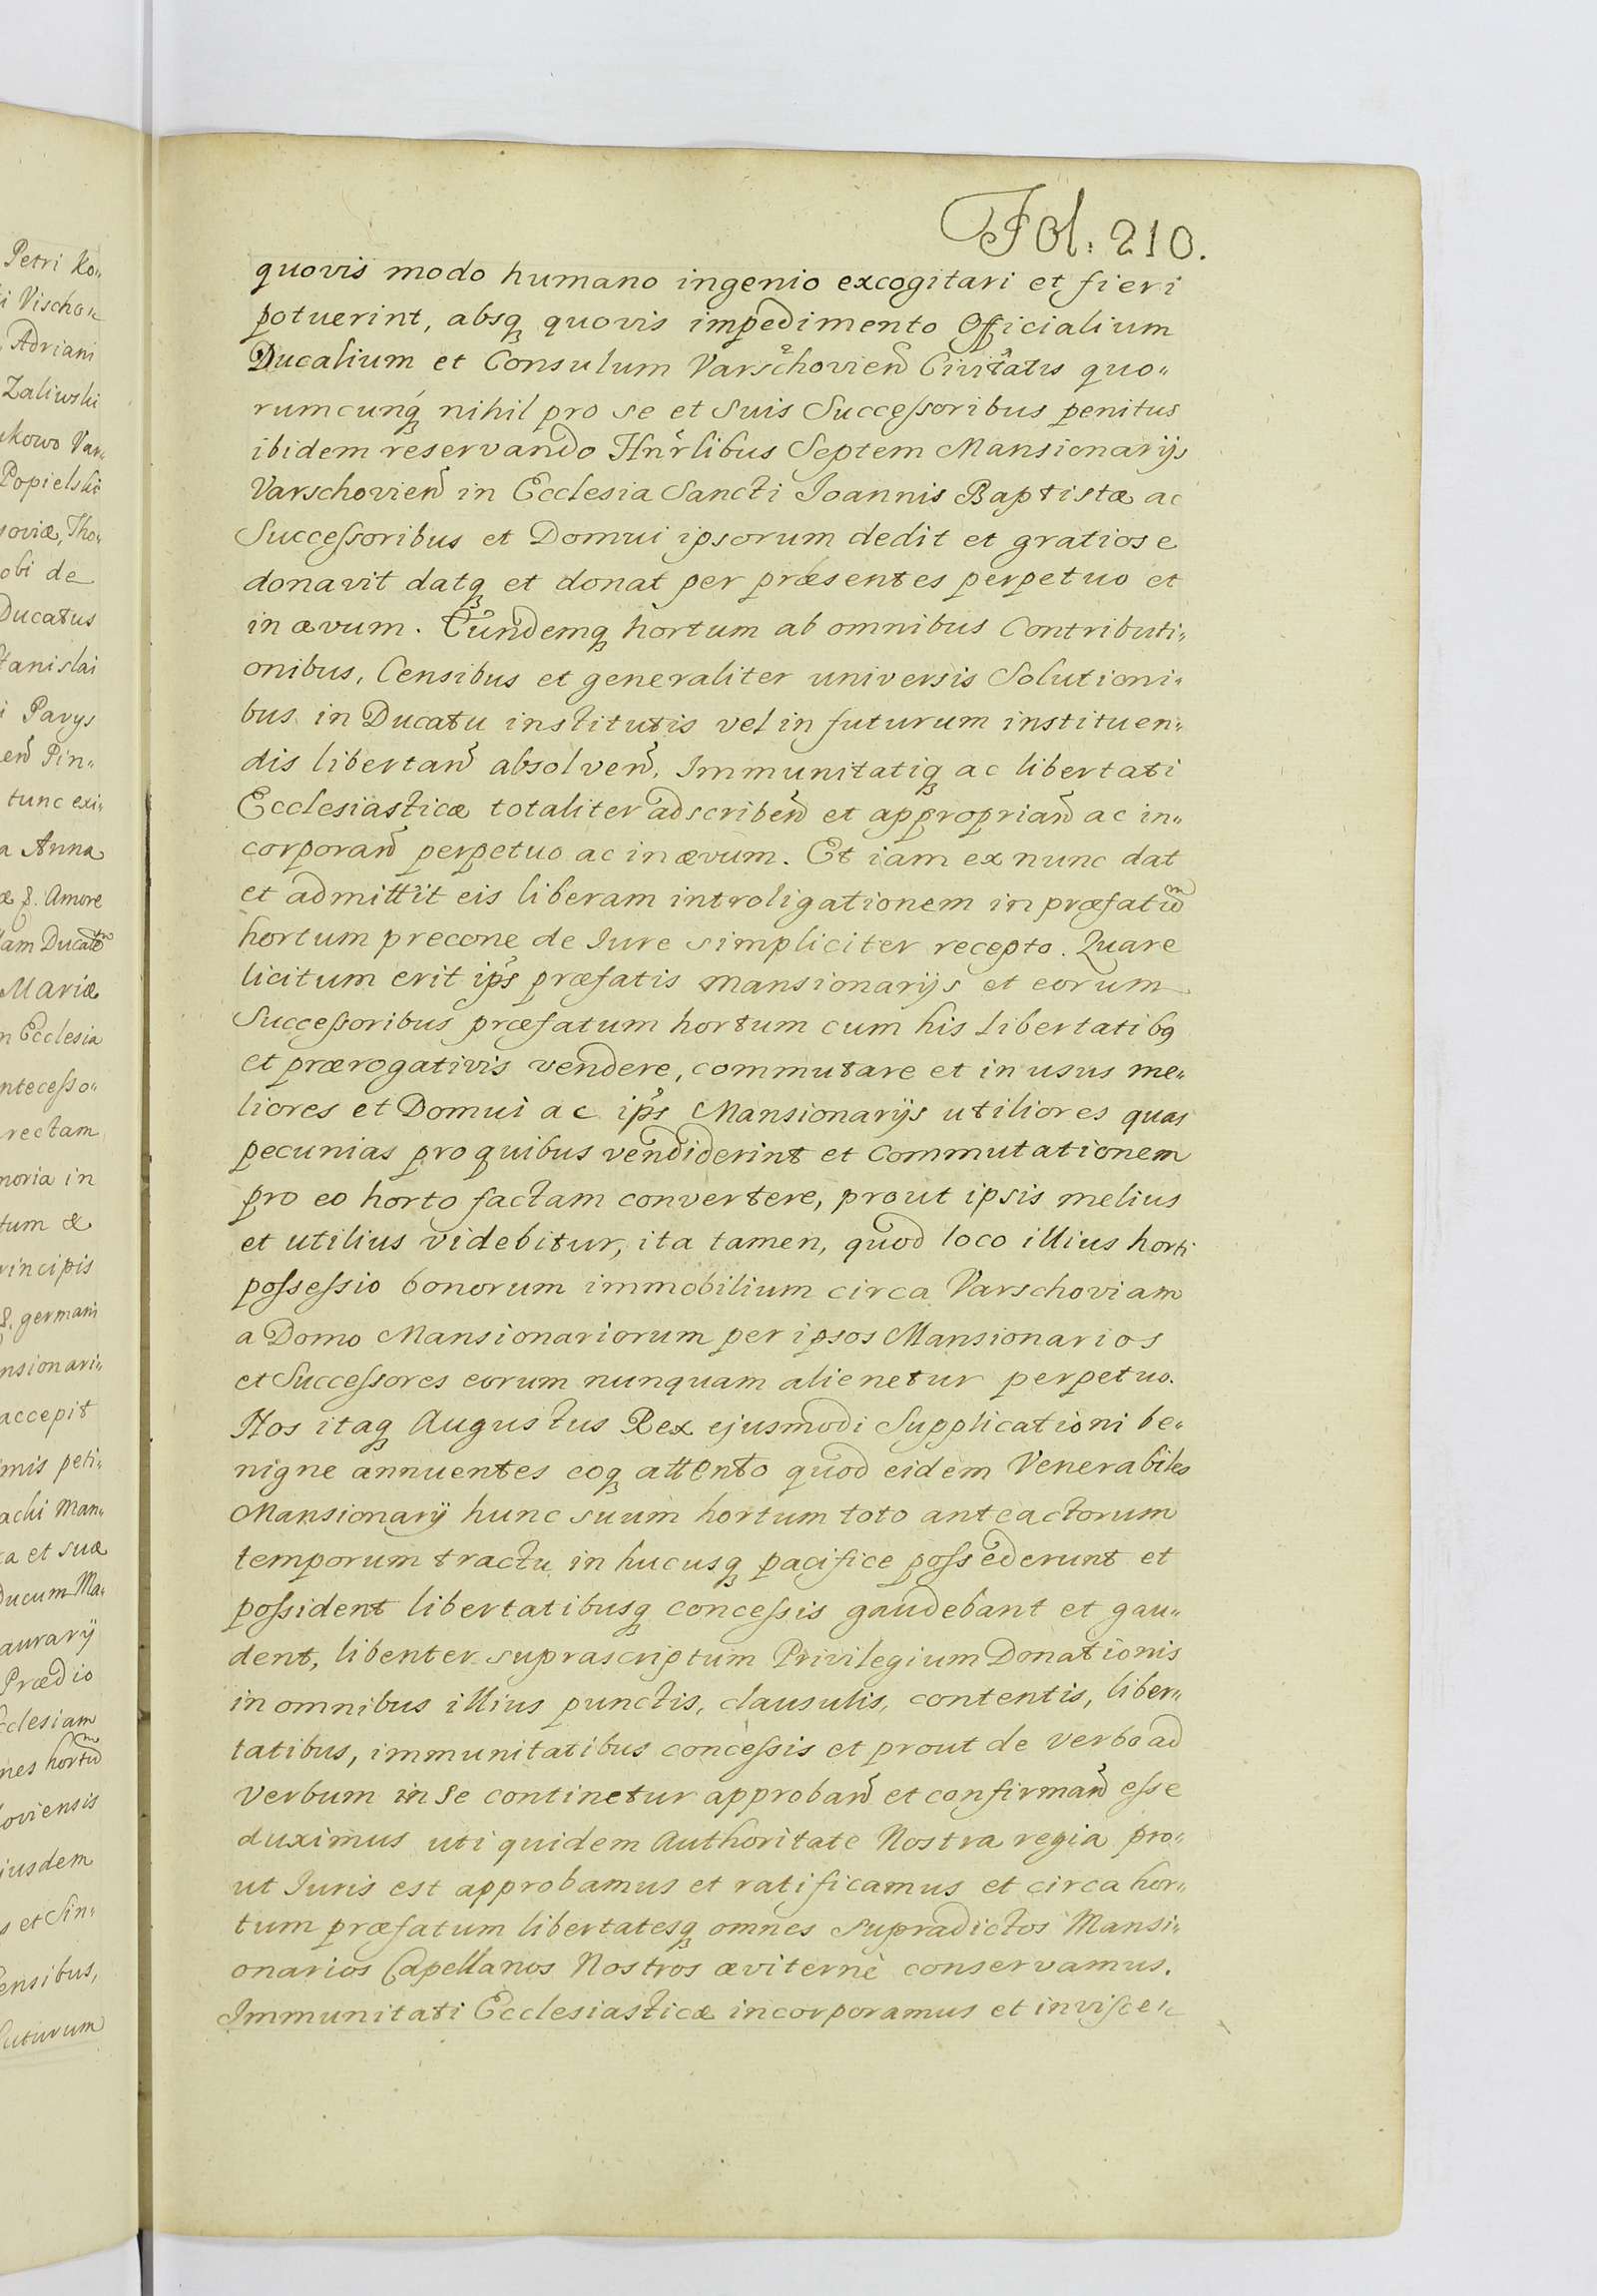 Petri Ko„
i Vischo„
Adriani
Zaliwski
ukowo Var„
Popielski
soviæ, Tho„
obi de
Ducatus
Stanislai
i Parys
eñ Pin„
tunc exi„
a Anna
æ &. Amore
lam Ducatũ
Mariæ
n Ecclesia
ntecesso„
rectam
moria in
tum &
rincipis
&. germani
nsionari„
accepit
imis peti„
achi Man„
ta et suæ
Ducum Ma„
aurarij
Prædio
cclesiam
nes hortũ
oviensis
iusdem
s et Sin„
Censibus,
futurum
Fol: 210.
quovis modo humano ingenio excogitari et fieri
potuerint, absq quovis impedimento Officialium
Ducalium et Consulum Varschovieñ Civitatis quo„
rumcunq nihil pro se et suis Successoribus penitus
ibidem reservando Hnrlibus Septem Mansionarijs
Varschovieñ in Ecclesia Sancti Joannis Baptistæ ac
Successoribus et Domui ipsorum dedit et gratiose
donavit datq et donat per præsentes perpetuo et
in ævum. Eundemq hortum ab omnibus Contributi„
onibus, Censibus et generaliter universis Solutioni„
bus in Ducatu institutis vel in futurum instituen„
dis libertañ absolveñ, Immunitatiq ac libertati
Ecclesiasticæ totaliter adscribeñ et appropriañ ac in„
corporañ perpetuo ac in ævum. Et iam ex nunc dat
et admittit eis liberam introligationem in præfatũ
hortum precone de Jure simpliciter recepto. Quare
licitum erit ips præfatis Mansionarijs et eorum
Successoribus præfatum hortum cum his libertatibq
et prærogativis vendere, commutare et in usus me„
liores et Domui ac ips Mansionarijs utiliores quas
pecunias pro quibus vendiderint et Commutationem
pro eo horto factam convertere, prout ipsis melius
et utilius videbitur, ita tamen, quod loco illius horti
possessio bonorum immobilium circa Varschoviam
a Domo Mansionariorum per ipsos Mansionarios
et Successores eorum nunquam alienetur perpetuo.
Nos itaq Augustus Rex ejusmodi Supplicationi be„
nigne annuentes eoq attento quod eidem Venerabiles
Mansionarij hunc suum hortum toto anteactorum
temporum tractu in hucusq pacifice possederunt et
possident libertatibusq concessis gaudebant et gau„
dent, libenter suprascriptum Privilegium Donationis
in omnibus illius punctis, clausulis, contentis, liber„
tatibus, immunitatibus concessis et prout de verbo ad
verbum in se continetur approbañ et confirmañ esse
duximus uti quidem Authoritate Nostra regia pro„
ut Juris est approbamus et ratificamus et circa hor„
tum præfatum libertatesq omnes supradictos Mansi„
onarios Capellanos Nostros æviternè conservamus.
Immunitati Ecclesiasticæ incorporamus et inviscer„